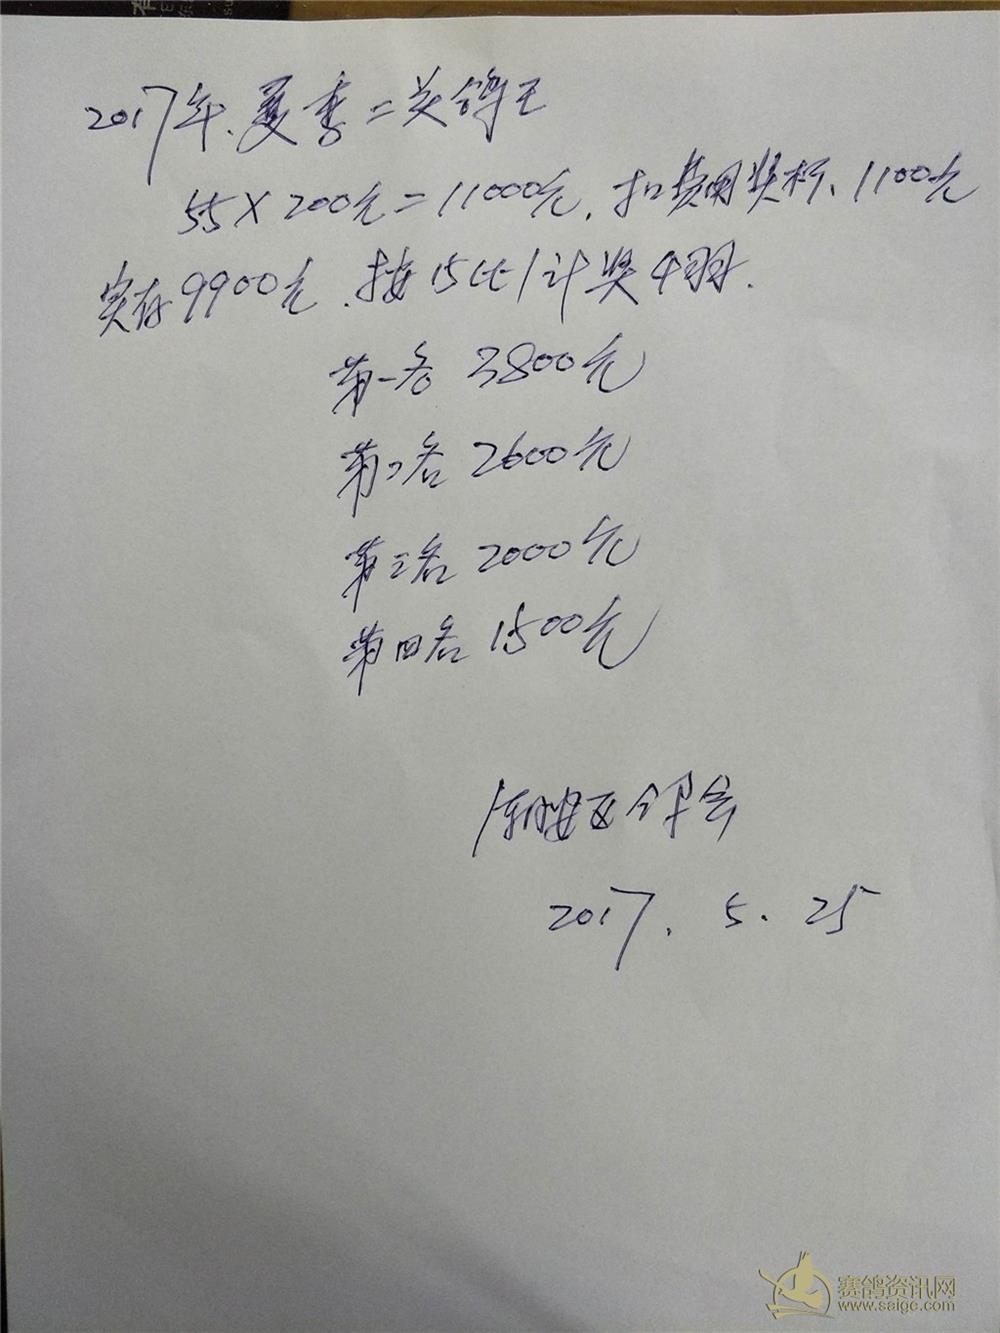 2017年.夏季二关鸽王
55×200元=11000元.扣费用奖杯、1100元
实存9900元.按15比1计奖4羽.
第一名 3800元
第二名 2600元
第三名 2000元
第四名 1500元
会
2017.5.25
赛鸽资讯网
www.saige.com